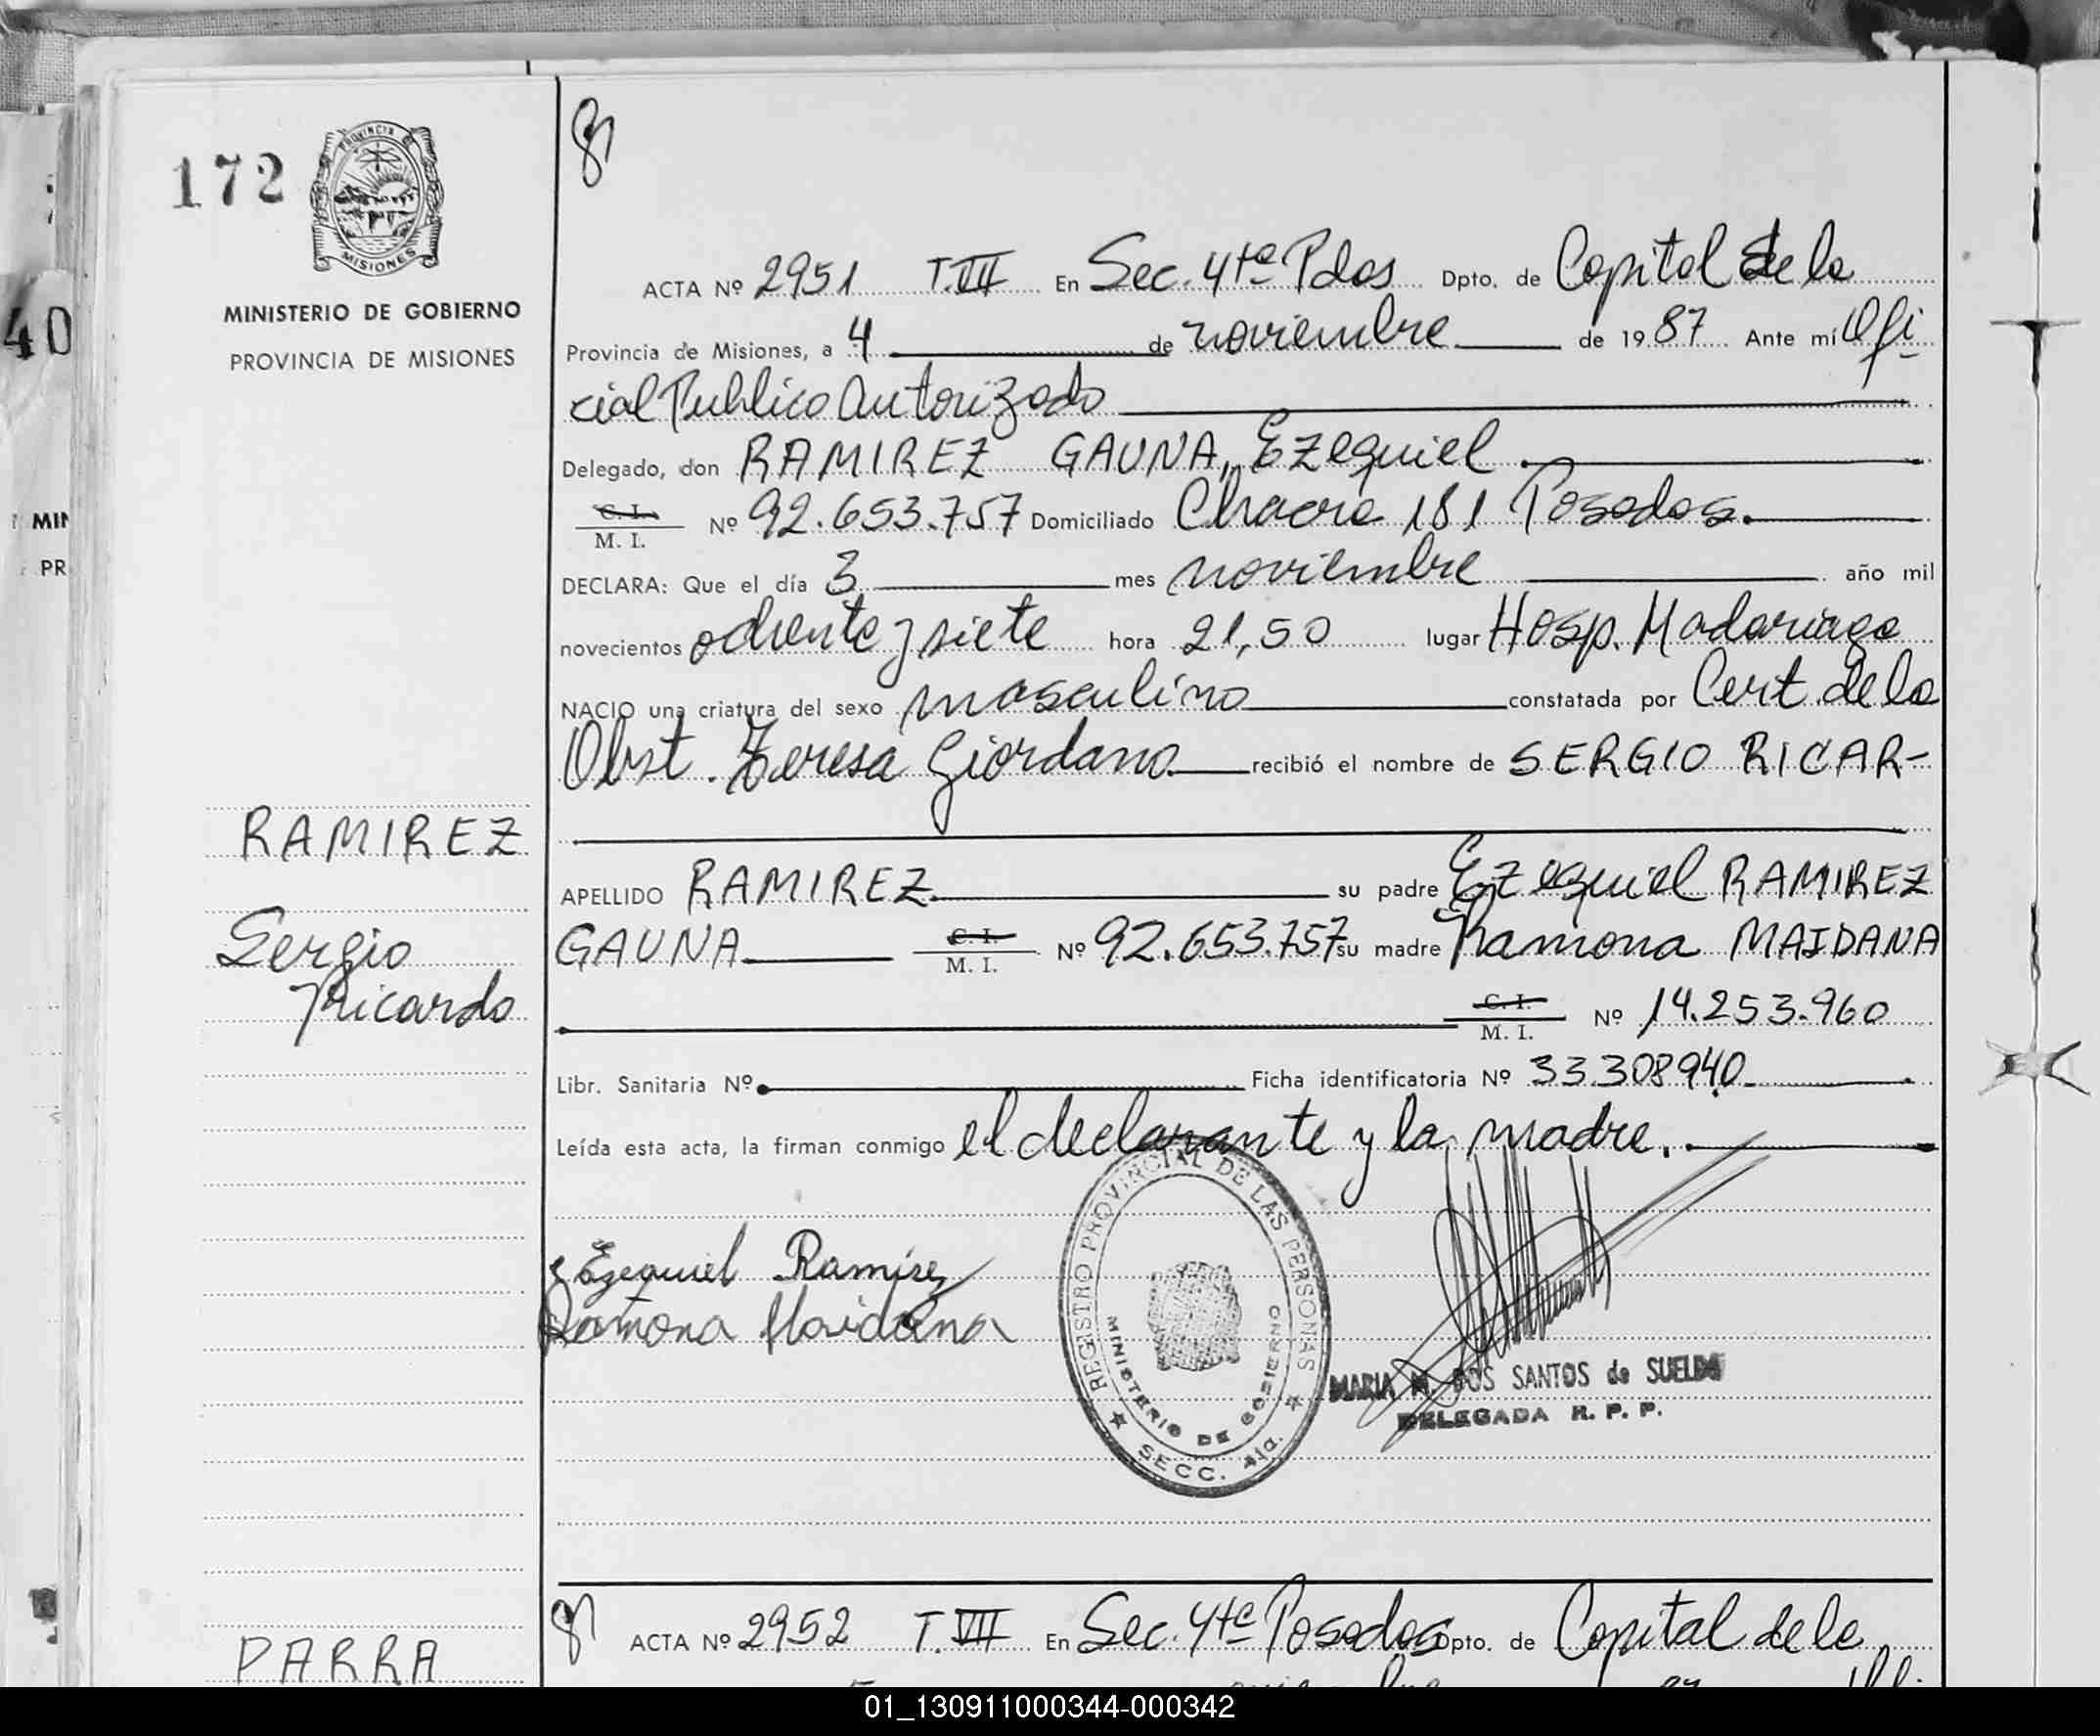 172
PROVINCIA DE
MISIONES
MINISTERIO DE GOBIERNO
PROVINCIA DE MISIONES
40
MIN
PR
ACTA Nº 2951 T.VII En Sec. 4ta Pdas Dpto. de Capital de la
Provincia de Misiones, a 4 de noviembre de 1987 Ante mí Ofi-
cial Publico Autorizado
Delegado, don RAMIREZ GAUNA, Ezequiel.
C. I.
M. I. Nº 92.653.757 Domiciliado Chacra 181 Posadas.
DECLARA: Que el día 3 mes noviembre año mil
novecientos ochenta y siete hora 21,50 lugar Hosp. Madariaga
NACIO una criatura del sexo masculino constatada por Cert. de la
Obst. Teresa Giordano recibió el nombre de SERGIO RICAR-
RAMIREZ
Sergio
Ricardo
APELLIDO RAMIREZ su padre Ezequiel RAMIREZ
GAUNA C. I.
M. I. Nº 92.653.757 su madre Ramona MAIDANA
C. I.
M. I. Nº 14.253.960
Libr. Sanitaria Nº Ficha identificatoria Nº 33.308940
Leída esta acta, la firman conmigo el declarante y la madre.
Ezequiel Ramirez
Ramona Maidana
REGISTRO PROVINCIAL DE LAS PERSONAS
MINISTERIO DE GOBIERNO
SECC. 4ta.
MARIA DOS SANTOS de SUELDO
DELEGADA R. P. P.
ACTA Nº 2952 T.VII En Sec. 4ta Posadas Dpto. de Capital de la
PARRA
01_130911000344-000342